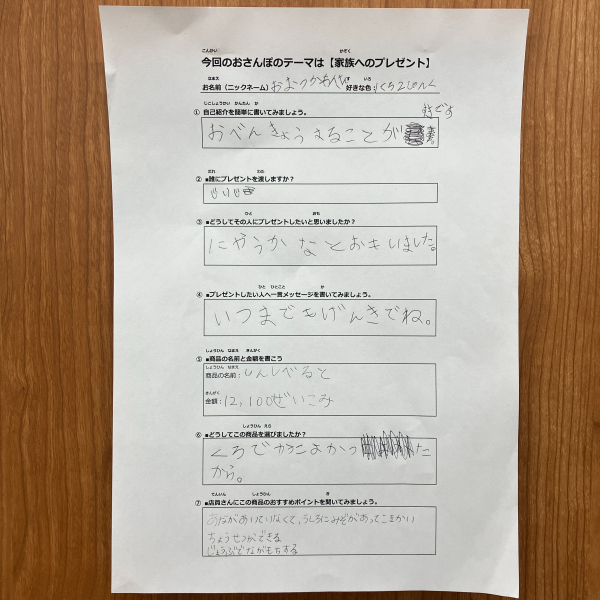 今回のおさんぽのテーマは【家族へのプレゼント】
お名前(ニックネーム) 好きな色:
① 自己紹介を簡単に書いてみましょう。 好です
おべんきょうすることが
② ■誰にプレゼントを渡しますか?
じいじ
③ ■どうしてその人にプレゼントしたいと思いましたか?
にやうかなとおもいました。
④ ■プレゼントしたい人へ一言メッセージを書いてみましょう。
いつまでもげんきでね。
⑤ ■商品の名前と金額を書こう
商品の名前:しんしべると
金額:12,100ぜいこみ
⑥ ■どうしてこの商品を選びましたか?
くろでかこよかった
から。
⑦ ■店員さんにこの商品のおすすめポイントを聞いてみましょう。
あながあいていなくて、うしろにみぞがあってこまかい
ちょうせつができる
じょうぶでながもちする